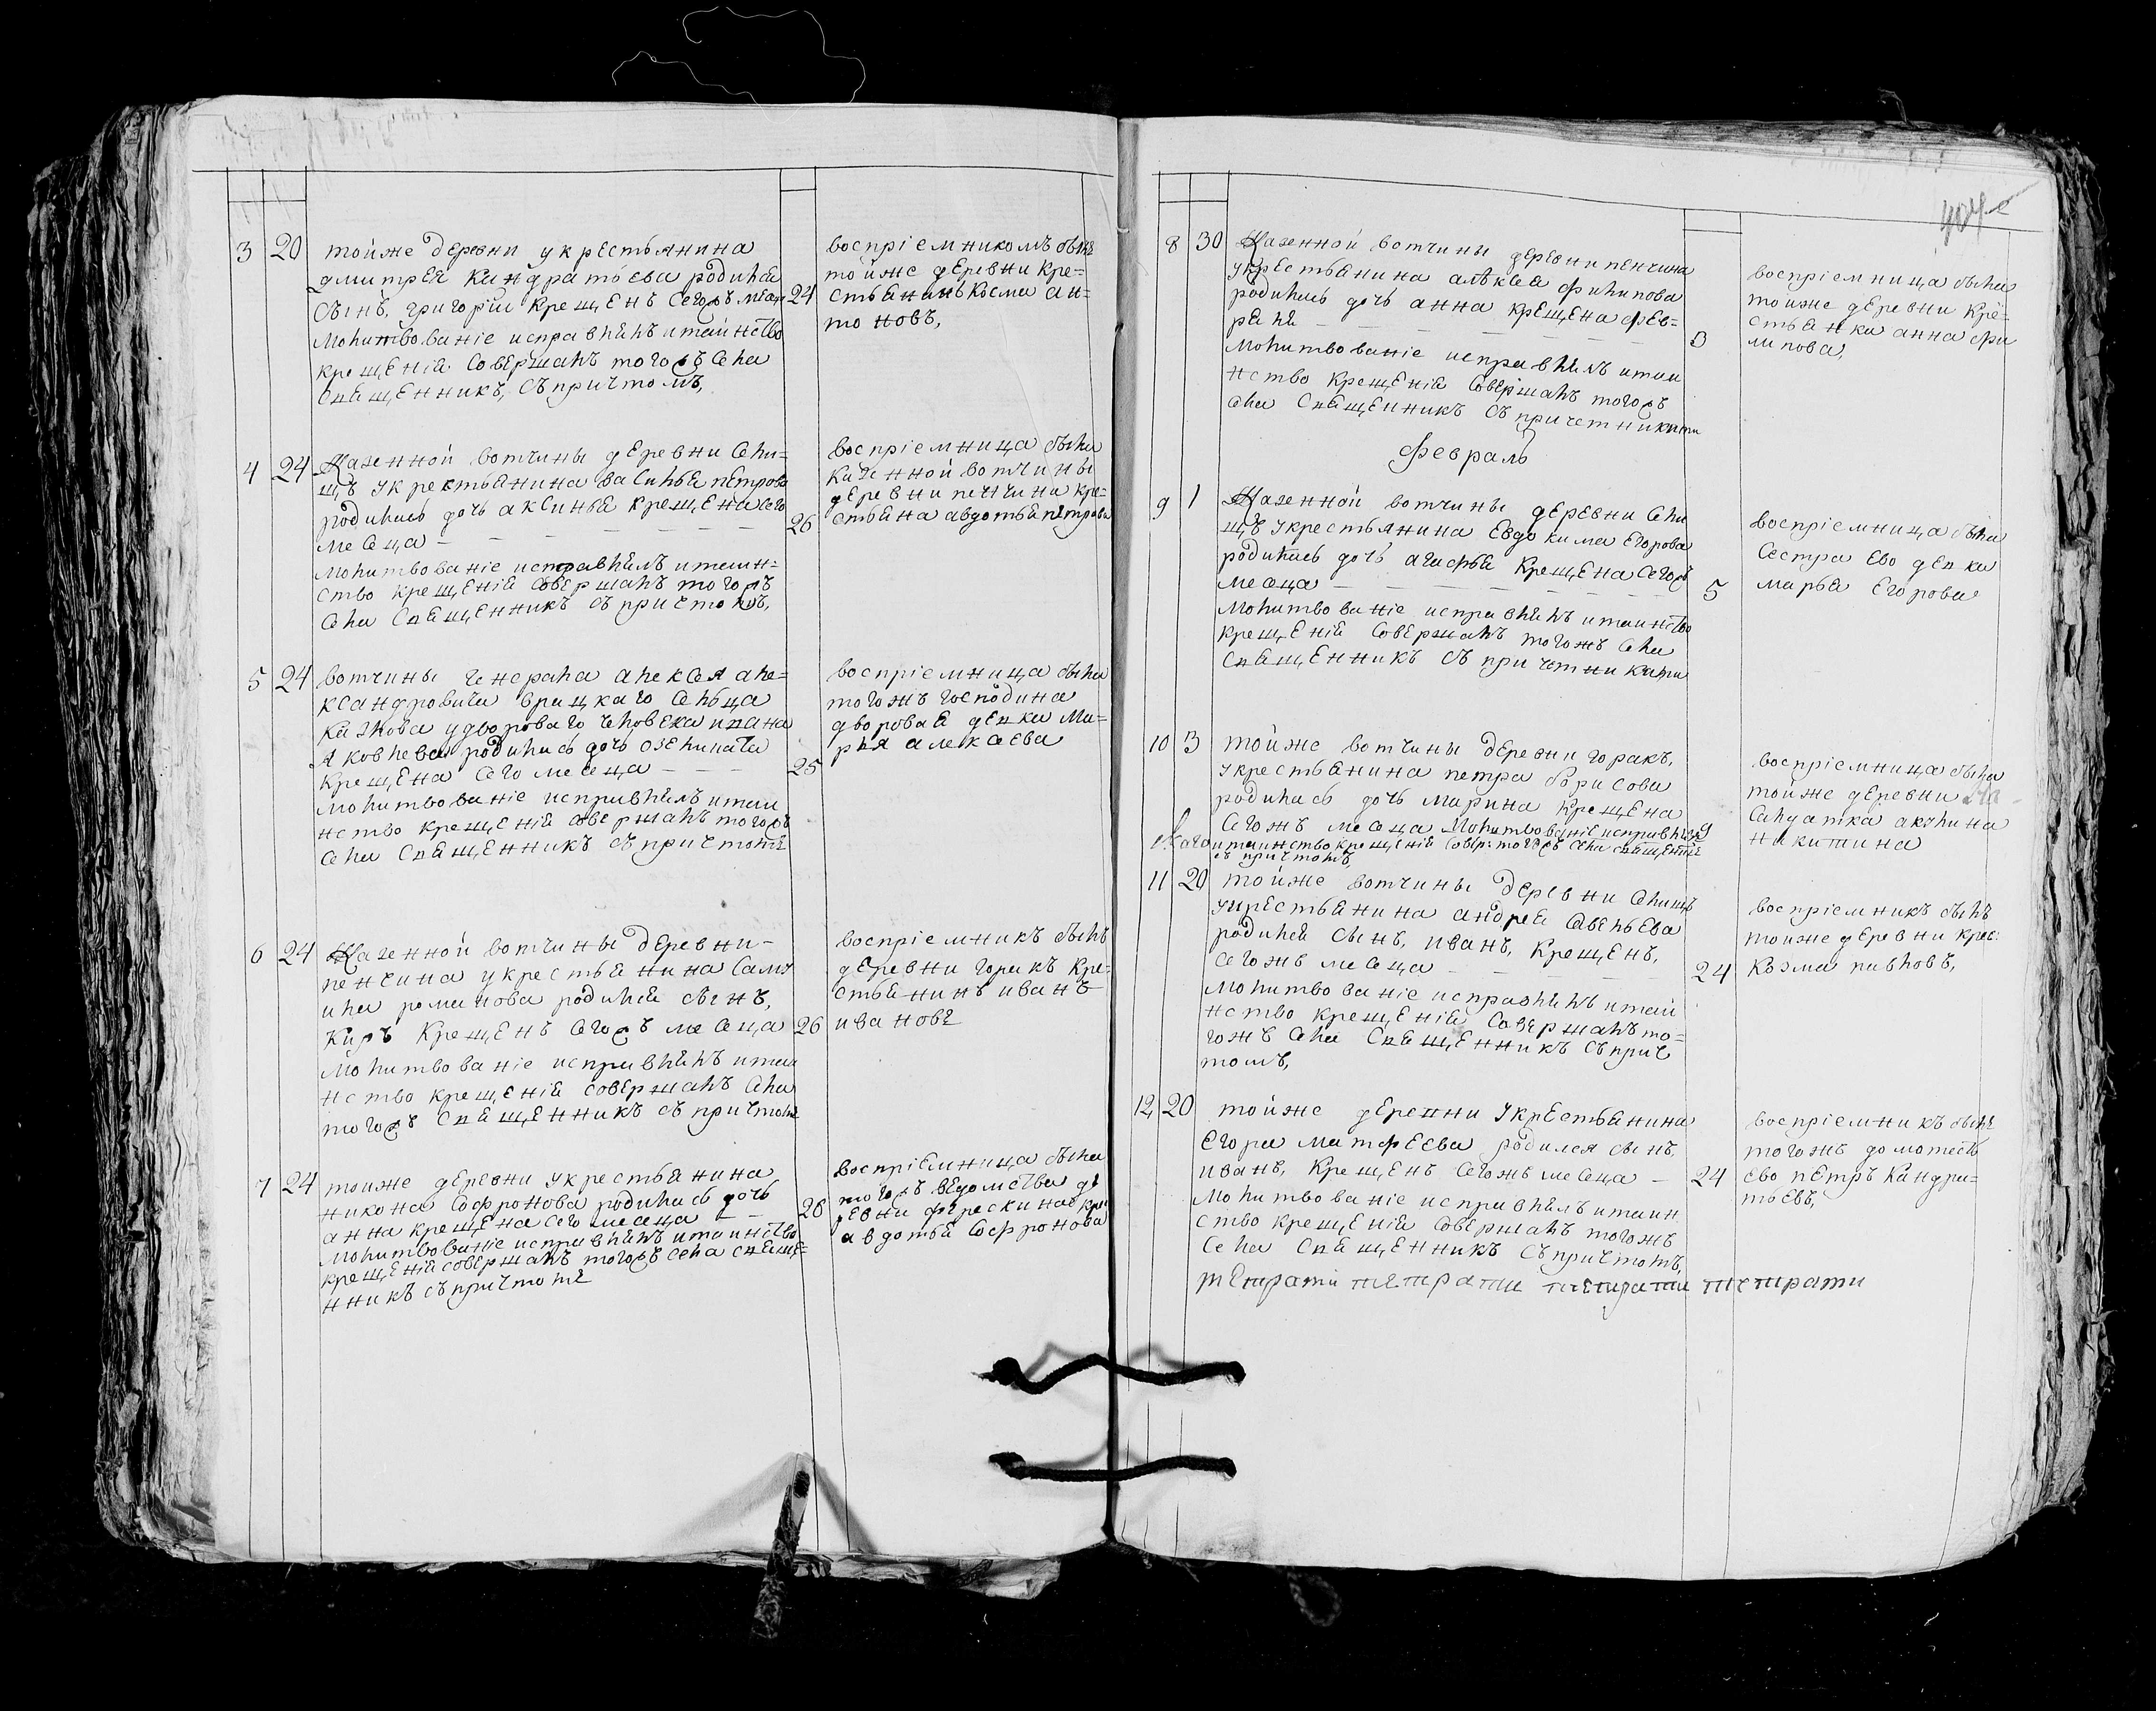 3 20 тойже деревни у крестьянина
дмитрея кандратьева родился
сынъ, григорій крещенъ сегожъ
24
молитвованіе исправлялъ итаинство
крещенія совершалъ тогожъ села
священникъ, съ причтомъ,
воспріемникомъ былъ
тойже деревни кре=
стьянинъ косма ан=
тоновъ,
4 24 Казенной вотчины деревни сели=
щъ укрестьянина василья петрова
родилась дочь аксинья крещена сего
месеца
26
молитвованіе исправлялъ итаин=
ство крещенія совершалъ тогожъ
села священникъ съ причтомъ,
воспріемница была
казенной вотчины
деревни пенчина кре=
стьяна авдотья петрова
5 24 вотчины генерала алексея але=
ксандровича сельца
у дворового человека ивана
яковлева родилась дочь
крещена сего месеца
25
молитвованіе исправлялъ итаи
нство крещенія совершалъ тогожъ
села священникъ съ причтомъ
воспріемница была
тогожъ господина
дворовая девка ма=
рья алексеева
6 24 Казенной вотчины деревни
пенчина укрестьянина само
ила романова родился сынъ,
киръ крещенъ сегожъ месеца 26
молитвованіе исправлялъ итаи
нство крещенія совершалъ села
тогожъ священникъ съ причтомъ
воспріемникъ былъ
деревни горакъ кре=
стьянинъ иванъ
ивановъ
7 24 тоиже деревни укрестьянина
никона софронова родилась дочь
анна крещена сего месеца
26
молитвованіе исправлялъ итаинство
крещенія совершалъ тогожъ села свяще=
нникъ съ причтомъ
воспріемница была
тогожъ ведомства де
ревни кре
авдотья софронова
8 30 Казенной вотчины деревни пенчина
укрестьянина алѣксея филипова
родилась дочь анна крещена фев=
раля
3
молитвованіе исправлялъ итаи
нство крещенія совершалъ тогожъ
села священникъ съ причетниками
воспріемница была
тоиже деревни кре=
стьянка анна фи
липова,
февраль
9 1 Казенной вотчины деревни сели
щъ укрестьянина евдокима егорова
родилась дочь агафья крещена сегожъ
месеца
5
молитвованіе исправлялъ итаинство
крещенія совершалъ тогожъ села
священникъ съ причетниками
воспріемница была
сестра ево девка
марья егорова
10 3 тойже вотчины деревни горакъ,
укрестьянина петра борисова
родилась дочь марина крещена
сегожъ месеца молитвованіе исправлялъ 9
итаинство крещенія совер: тогожъ села священникъ
съ причтомъ
воспріемница была
тоиже деревни
салдатка акулина
никитина
11 20 тойже вотчины деревни селищъ
укрестьянина андрея савельева
родился сынъ, иванъ, крещенъ,
сегожъ месеца
24
молитвованіе исправлялъ итаи
нство крещенія совершалъ то=
гожъ села священникъ съ прич
томъ,
воспріемникъ былъ
тоиже деревни крес:
козма павловъ,
12 20 тоиже деревни укрестьянина
егора матфеева родился сынъ
иванъ, крещенъ сегожъ месеца
24
молитвованіе исправлялъ итаин
ство крещенія совершалъ тогожъ
села священникъ съ причтомъ,
воспріемникъ былъ
тогожъ
ево петръ кандра=
тьевъ,